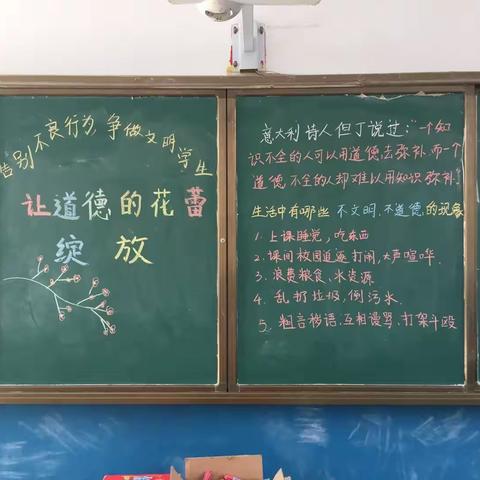 告别不良行为,争做文明学生
让道德的花蕾
绽放
意大利诗人但丁说过:"一个知
识不全的人可以用道德去弥补,而一个
道德不全的人却难以用知识弥补."
生活中有哪些不文明、不道德的现象
1. 上课睡觉,吃东西
2. 课间校园追逐打闹,大声喧哗.
3. 浪费粮食、水资源
4. 乱扔垃圾,倒污水.
5. 粗言秽语、互相谩骂、打架斗殴